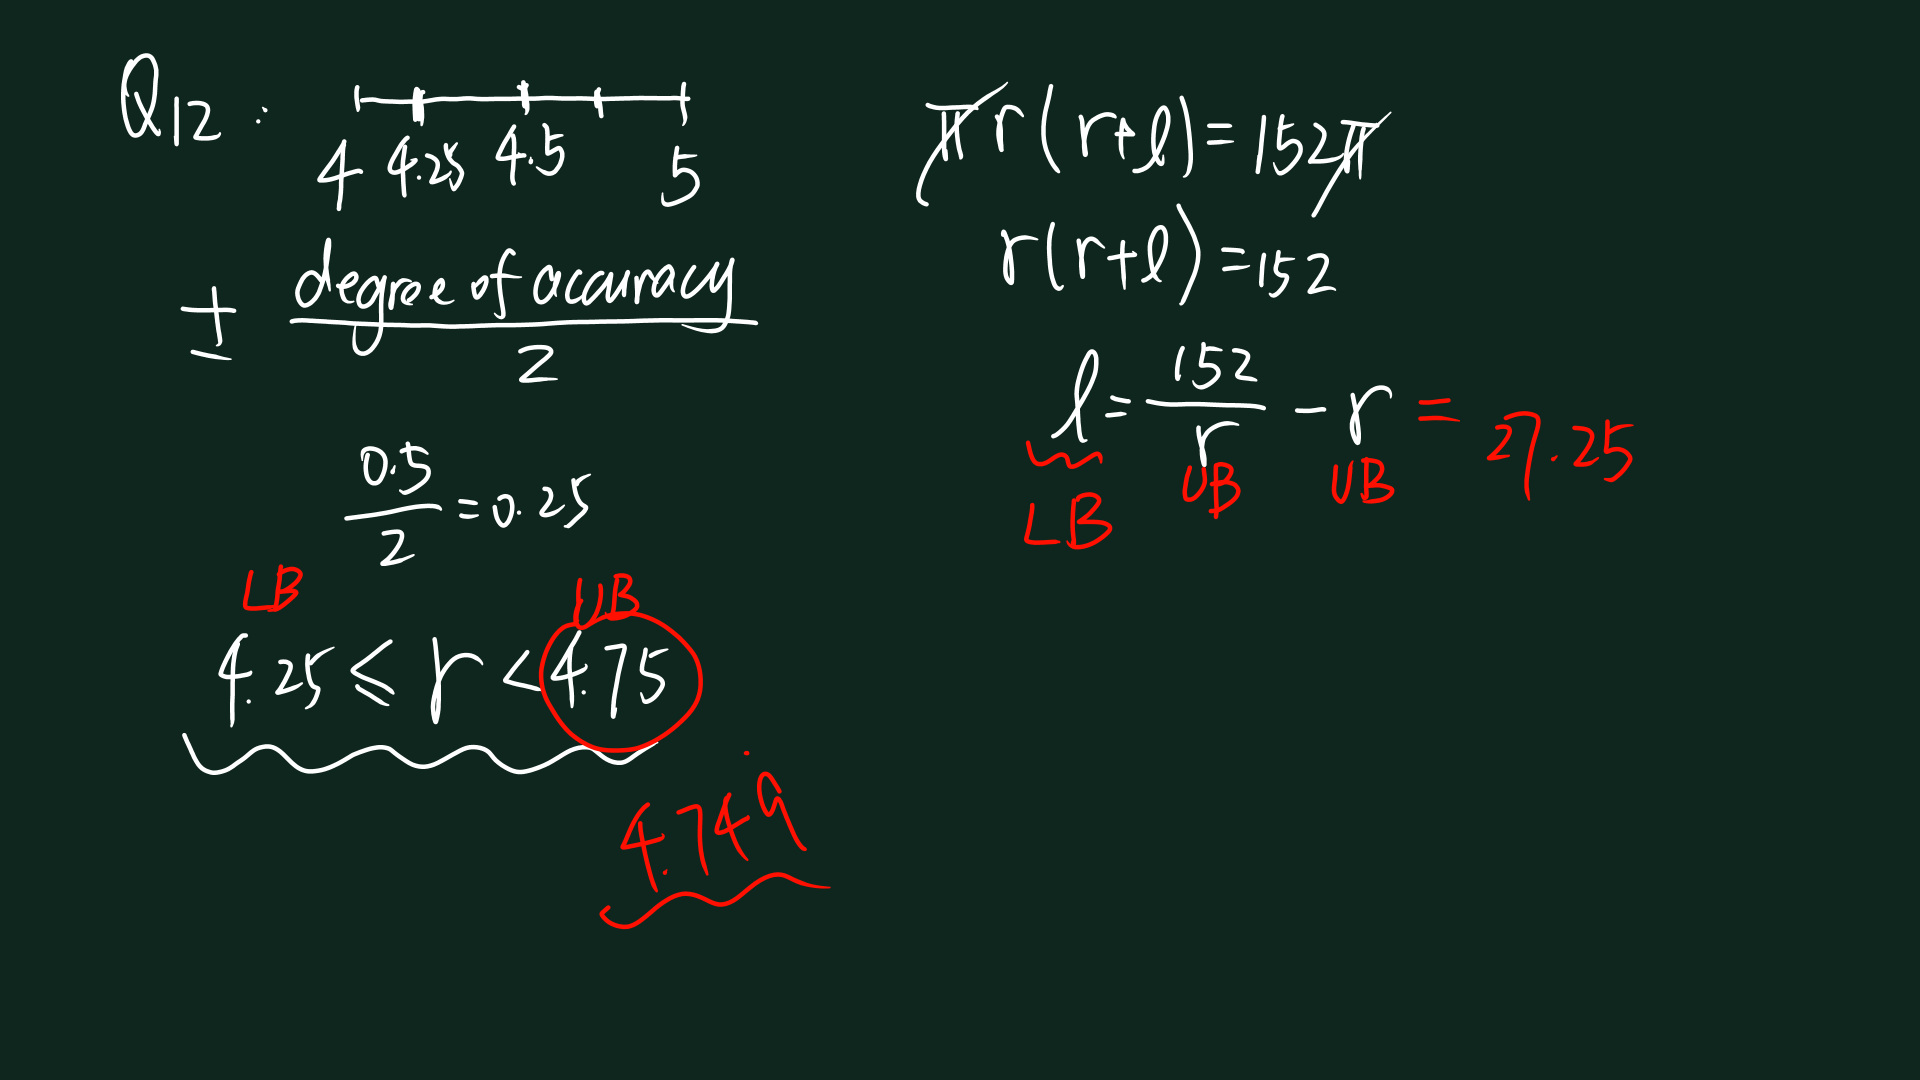 Q12 :
4 4.25 4.5 5
± degree of accuracy / 2
0.5 / 2 = 0.25
LB UB
4.25 ≤ r < 4.75
4.749̇
πr(r+l) = 152π
r(r+l) = 152
l = 152 / r - r = 27.25
LB UB UB